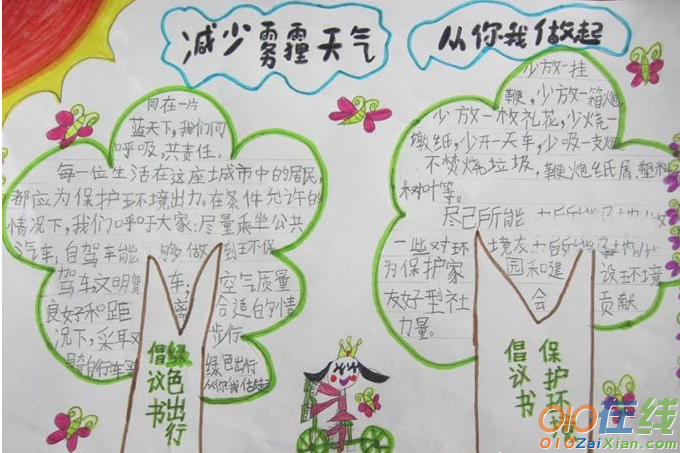 减少雾霾天气
从你我做起
同在一片
蓝天下,我们同
呼吸,共责任.
每一位生活在这座城市中的居民,
都应为保护环境出力。在条件允许的
情况下,我们呼吁大家:尽量乘坐公共
汽车;自驾车能够做到环保
驾车文明驾车;空气质量
良好和距离合适的情
况下,采取步行
骑自行车等绿色出行
从你我做起
倡议书
绿色出行
少放一挂
鞭,少放一箱炮,
少放一枚礼花,少烧一
墩纸,少开一天车,少吸一支烟
不焚烧垃圾,鞭炮纸屑,塑料
树叶等。
尽己所能
一些对环境友
为保护家园和建设环境
友好型社会贡献
力量。
倡议书
保护环境
010在线
010ZaiXian.com